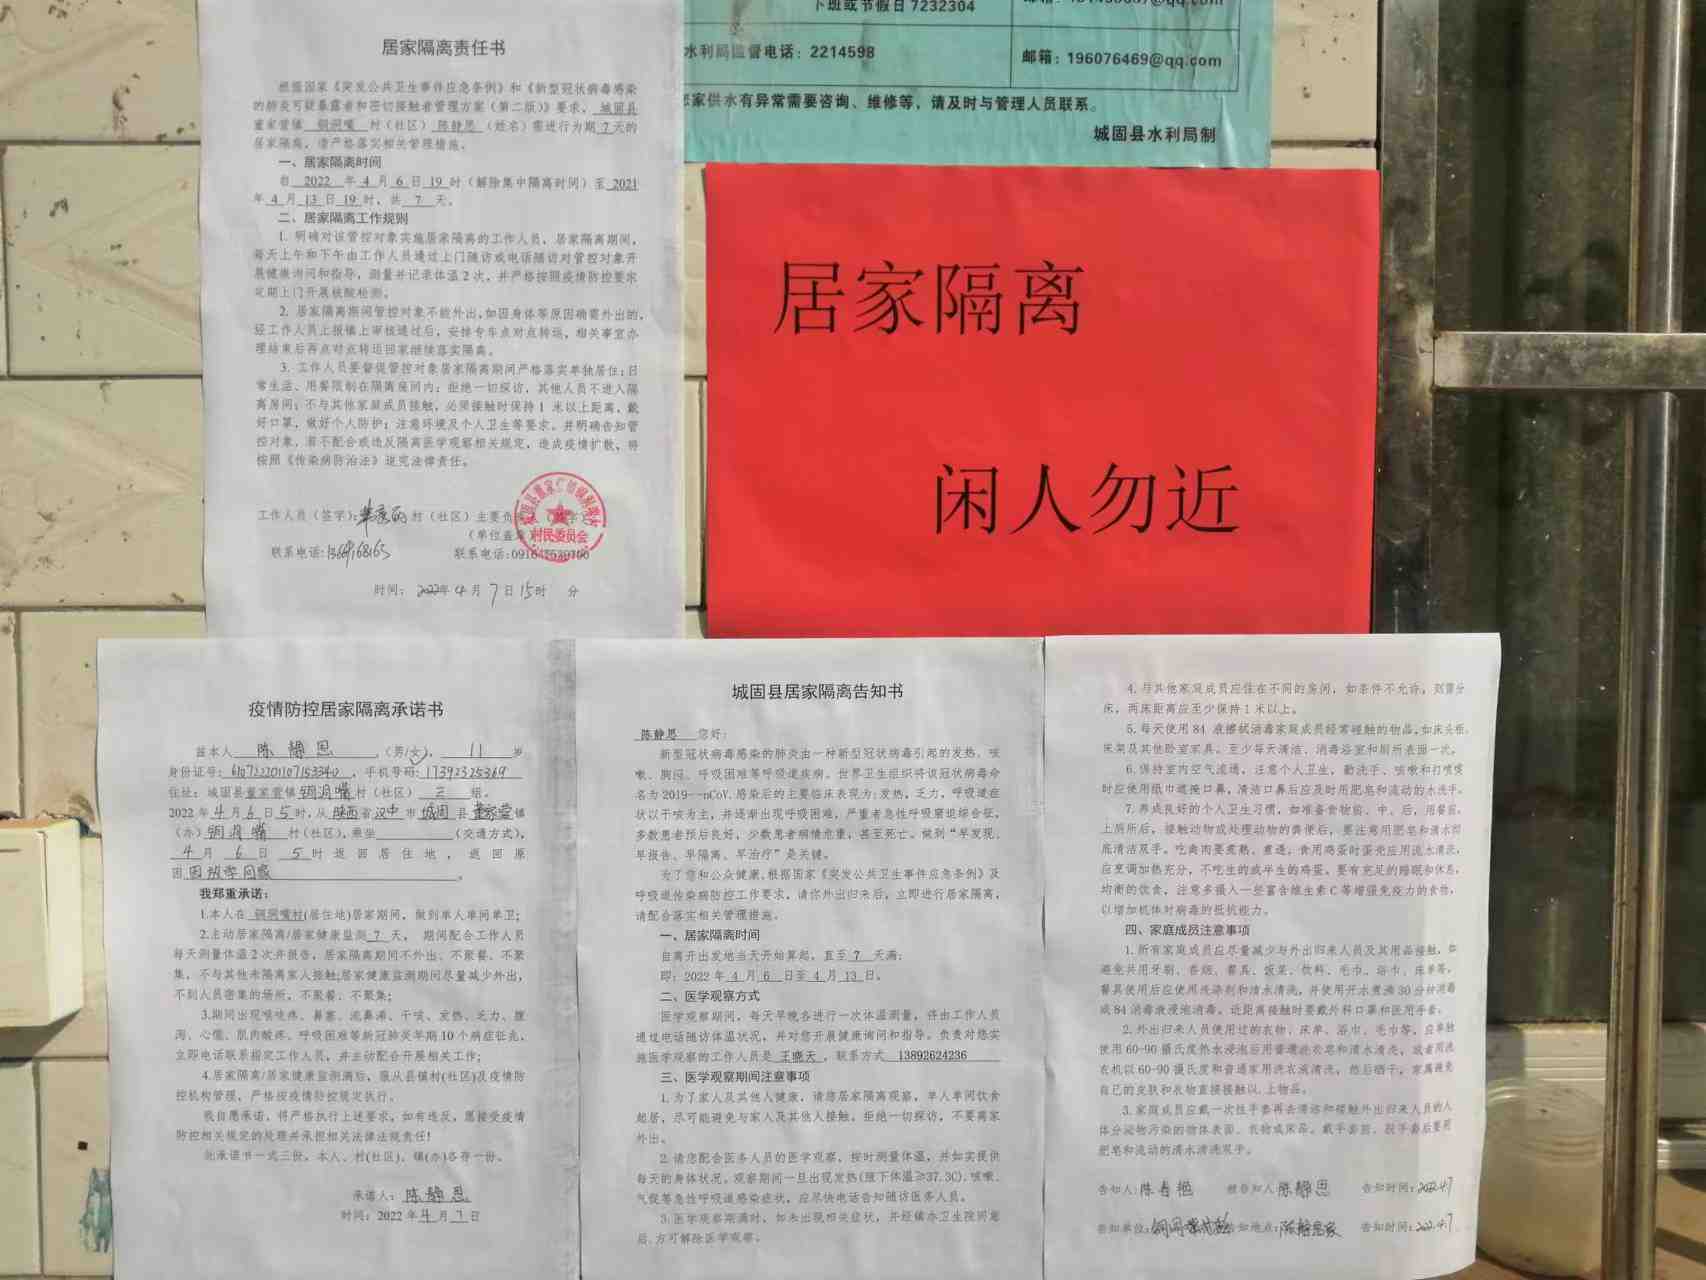 下班或节假日 7232304
水利局监督电话：2214598
邮箱：196076469@qq.com
您家供水有异常需要咨询、维修等，请及时与管理人员联系。
城固县水利局制
居家隔离责任书
根据国家《突发公共卫生事件应急条例》和《新型冠状病毒感染
的肺炎可疑暴露者和密切接触者管理方案（第二版）》要求，城固县
董家营镇 铜洞嘴 村（社区） 陈静思 （姓名）需进行为期 7 天的
居家隔离，请严格落实相关管理措施。
一、居家隔离时间
自 2022 年 4 月 6 日 19 时（解除集中隔离时间）至 2021
年 4 月 13 日 19 时，共 7 天。
二、居家隔离工作规则
1. 明确对该管控对象实施居家隔离的工作人员，居家隔离期间，
每天上午和下午由工作人员通过上门随访或电话随访对管控对象开
展健康询问和指导，测量并记录体温 2 次，并严格按照疫情防控要求
定期上门开展核酸检测。
2. 居家隔离期间管控对象不能外出，如因身体等原因确需外出的，
经工作人员上报镇上审核通过后，安排专车点对点转运，相关事宜办
理结束后再点对点转运回家继续落实隔离。
3. 工作人员要督促管控对象居家隔离期间严格落实单独居住；日
常生活、用餐限制在隔离房间内；拒绝一切探访，其他人员不进入隔
离房间；不与其他家庭成员接触，必须接触时保持 1 米以上距离，戴
好口罩，做好个人防护；注意环境及个人卫生等要求。并明确告知管
控对象，若不配合或违反隔离医学观察相关规定，造成疫情扩散，将
按照《传染病防治法》追究法律责任。
工作人员（签字）： 村（社区）主要负
（单位盖章
村民委员会
联系电话： 联系电话：
时间：2022年 4 月 7 日 15时 分
居家隔离
闲人勿近
疫情防控居家隔离承诺书
兹本人 陈静思 ，（男/女）， 11 岁
身份证号：610722201107153340 ，手机号码：17392325369
住址：城固县董家营镇 铜洞嘴 村（社区） 三 组。
2022 年 4 月 6 日 5 时，从 陕西 省 汉中 市 城固 县 董家营 镇
（办） 铜洞嘴 村（社区），乘坐 （交通方式），
4 月 6 日 5 时返回居住地，返回原
因 因放学回家 。
我郑重承诺：
1.本人在 铜洞嘴村(居住地)居家期间，做到单人单间单卫；
2.主动居家隔离/居家健康监测 7 天， 期间配合工作人员
每天测量体温 2 次并报告，居家隔离期间不外出、不聚餐、不聚
集，不与其他未隔离家人接触；居家健康监测期间尽量减少外出，
不到人员密集的场所，不聚餐、不聚集；
3.期间出现咽咙疼、鼻塞、流鼻涕、干咳、发热、乏力、腹
泻、心慌、肌肉酸疼、呼吸困难等新冠肺炎早期 10 个病症征兆，
立即电话联系指定工作人员，并主动配合开展相关工作；
4.居家隔离/居家健康监测满后，服从县镇村(社区)及疫情防
控机构管理，严格按疫情防控规定执行。
我自愿承诺，将严格执行上述要求，如有违反，愿接受疫情
防控相关规定的处理并承担相关法律法规责任！
此承诺书一式三份，本人、村(社区)、镇(办)各存一份。
承诺人：陈静思
时间：2022 年 4 月 7 日
城固县居家隔离告知书
陈静思 您好：
新型冠状病毒感染的肺炎由一种新型冠状病毒引起的发热、咳
嗽、胸闷、呼吸困难等呼吸道疾病。世界卫生组织将该冠状病毒命
名为 2019--nCoV，感染后的主要临床表现为：发热，乏力，呼吸道症
状以干咳为主，并逐渐出现呼吸困难，严重者急性呼吸窘迫综合征，
多数患者预后良好，少数患者病情危重，甚至死亡。做到“早发现、
早报告、早隔离、早治疗”是关键。
为了您和公众健康，根据国家《突发公共卫生事件应急条例》及
呼吸道传染病防控工作要求，请你外出归来后，立即进行居家隔离，
请配合落实相关管理措施。
一、居家隔离时间
自离开出发地当天开始算起，直至 7 天满；
即：2022 年 4 月 6 日至 4 月 13 日。
二、医学观察方式
医学观察期间，每天早晚各进行一次体温测量，将由工作人员
通过电话随访体温状况，并对您开展健康询问和指导。负责对您实
施医学观察的工作人员是 王晓天 ，联系方式 13892624236
三、医学观察期间注意事项
1.为了家人及其他人健康，请您居家隔离观察，单人单间饮食
起居，尽可能避免与家人及其他人接触，拒绝一切探访，不要离家
外出。
2.请您配合医务人员的医学观察，按时测量体温，并如实提供
每天的身体状况。观察期间一旦出现发热(腋下体温≥37.3C)、咳嗽、
气促等急性呼吸道感染症状，应尽快电话告知随访医务人员。
3.医学观察期满时，如未出现相关症状，并经镇办卫生院同意
后，方可解除医学观察。
4.与其他家庭成员应住在不同的房间，如条件不允许，则需分
床，两床距离应至少保持 1 米以上。
5.每天使用 84 液擦拭消毒家庭成员经常碰触的物品，如床头柜、
床架及其他卧室家具。至少每天清洁、消毒浴室和厕所表面一次。
6.保持室内空气流通，注意个人卫生，勤洗手、咳嗽和打喷嚏
时应使用纸巾遮掩口鼻，清洁口鼻后应及时用肥皂和流动的水洗手。
7.养成良好的个人卫生习惯，如准备食物前、中、后，用餐前，
上厕所后，接触动物或处理动物的粪便后，要注意用肥皂和清水彻
底清洁双手。吃禽肉要煮熟、煮透，食用鸡蛋时蛋壳应用流水清洗，
应烹调加热充分，不吃生的或半生的鸡蛋。要有充足的睡眠和休息，
均衡的饮食，注意多摄入一些富含维生素 C 等增强免疫力的食物，
以增加机体对病毒的抵抗能力。
四、家庭成员注意事项
1.所有家庭成员应尽量减少与外出归来人员及其用品接触，如
避免共用牙刷、香烟、餐具、饭菜、饮料、毛巾、浴巾、床单等，
餐具使用后应使用洗涤剂和清水清洗，并使用开水煮沸 30 分钟消毒
或 84 消毒液浸泡消毒。近距离接触时要戴外科口罩和医用手套。
2.外出归来人员使用过的衣物、床单、浴巾、毛巾等，应单独
使用 60-90 摄氏度热水浸泡后用普通洗衣皂和清水清洗，或者用洗
衣机以 60-90 摄氏度和普通家用洗衣液清洗，然后晒干，家属避免
自己的皮肤和衣物直接接触以上物品。
3.家庭成员应戴一次性手套再去清洁和接触外出归来人员的人
体分泌物污染的物体表面、衣物或床品。戴手套前、脱手套后要用
肥皂和流动的清水清洗双手。
告知人： 被告知人 陈静思 告知时间：2022.4.7
告知单位： 告知地点：陈静思家 告知时间：2022.4.7